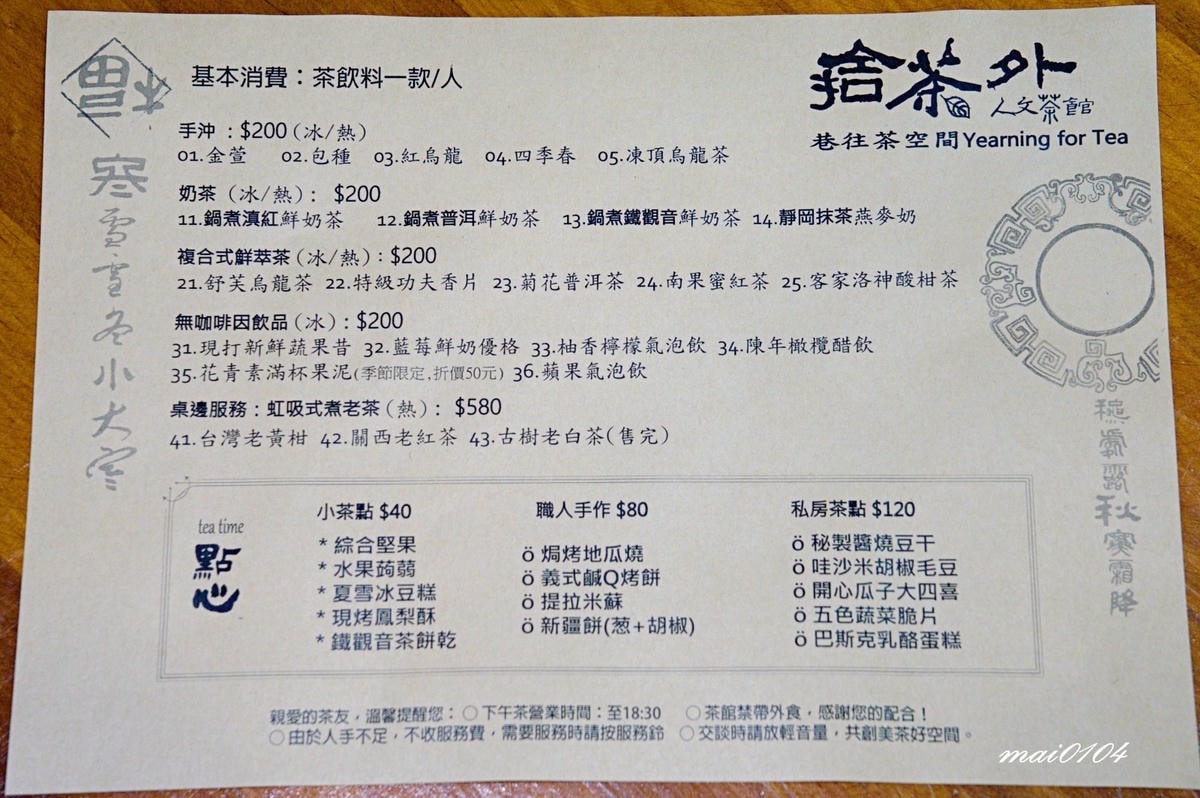 福
基本消費：茶飲料一款/人
拾茶外
人文茶館
巷往茶空間Yearning for Tea
手沖：$200（冰/熱）
01.金萱 02.包種 03.紅烏龍 04.四季春 05.凍頂烏龍茶
奶茶（冰/熱）： $200
11.鍋煮滇紅鮮奶茶 12.鍋煮普洱鮮奶茶 13.鍋煮鐵觀音鮮奶茶 14.靜岡抹茶燕麥奶
複合式鮮萃茶（冰/熱）：$200
21.舒芙烏龍茶 22.特級功夫香片 23.菊花普洱茶 24.南果蜜紅茶 25.客家洛神酸柑茶
無咖啡因飲品（冰）：$200
31.現打新鮮蔬果昔 32.藍莓鮮奶優格 33.柚香檸檬氣泡飲 34.陳年橄欖醋飲
35.花青素滿杯果泥(季節限定,折價50元) 36.蘋果氣泡飲
桌邊服務：虹吸式煮老茶（熱）： $580
41.台灣老黃柑 42.關西老紅茶 43.古樹老白茶(售完)
寒雪雪冬小大寒
秋寒霜降
tea time
點心
小茶點 $40
* 綜合堅果
* 水果蒟蒻
* 夏雪冰豆糕
* 現烤鳳梨酥
* 鐵觀音茶餅乾
職人手作 $80
ö 焗烤地瓜燒
ö 義式鹹Q烤餅
ö 提拉米蘇
ö 新疆餅(葱+胡椒)
私房茶點 $120
ö 秘製醬燒豆干
ö 哇沙米胡椒毛豆
ö 開心瓜子大四喜
ö 五色蔬菜脆片
ö 巴斯克乳酪蛋糕
親愛的茶友，溫馨提醒您：○下午茶營業時間：至18:30 ○茶館禁帶外食，感謝您的配合！
○由於人手不足，不收服務費，需要服務時請按服務鈴 ○交談時請放輕音量，共創美茶好空間。
mai0104